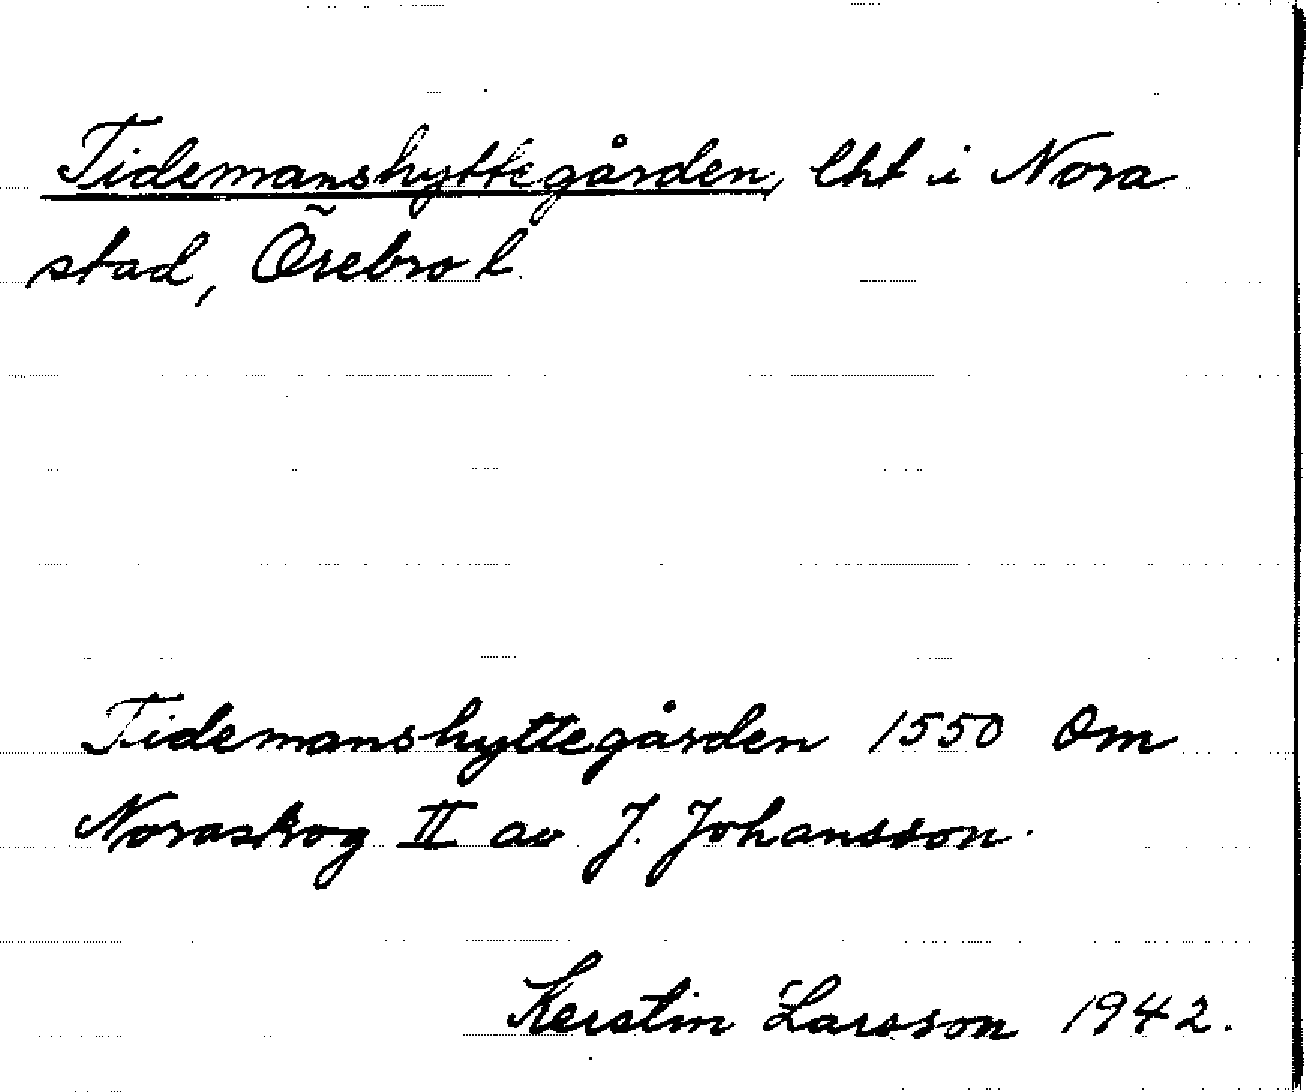 Tidemanshyttegården, lht i Nora
stad, Örebro l.
Tidemanshyttegården 1550 Om
Noraskog II av J. Johansson.
Kerstin Larsson 1942.